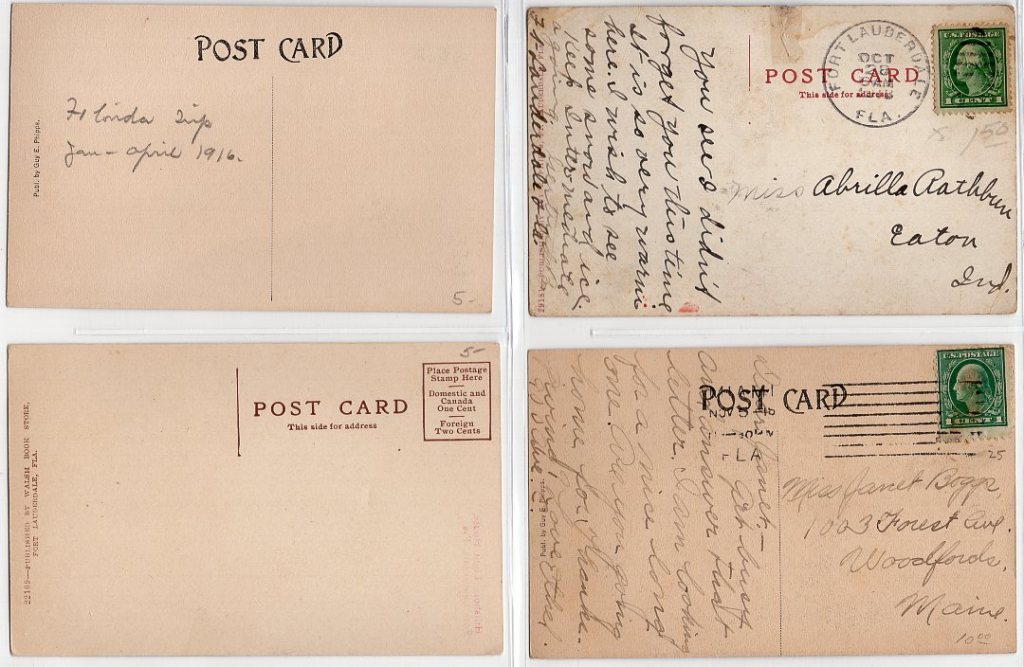 POST CARD
Florida Trip
Jan - April 1916.
Publ. by Guy E. Phipps.
5-
You see I didn't
forget you this time
it is so very warm
here. I wish to see
some snow and ice.
Keep Intermediate
Ft Lauderdale Fla.
POST CARD
This side for address
FORT LAUDERDALE
OCT
AM
FLA.
U.S. POSTAGE
1 CENT 1
x 150
Miss Abrilla Rathbun
Eaton
Ind.
5-
22109—PUBLISHED BY WALSH BOOK STORE,
FORT LAUDERDALE, FLA.
POST CARD
This side for address
Place Postage
Stamp Here
Domestic and
Canada
One Cent
Foreign
Two Cents
Dear Janet,—
Get busy
and answer that
letter. I am looking
for a nice long
one. Are you going
home for Thanks-
Publ. by Guy E. Phipps.
POST CARD
MIAMI
FLA
U.S. POSTAGE
25
Miss Janet Boggs,
103 Forest Ave.
Woodfords,
Maine.
10.00